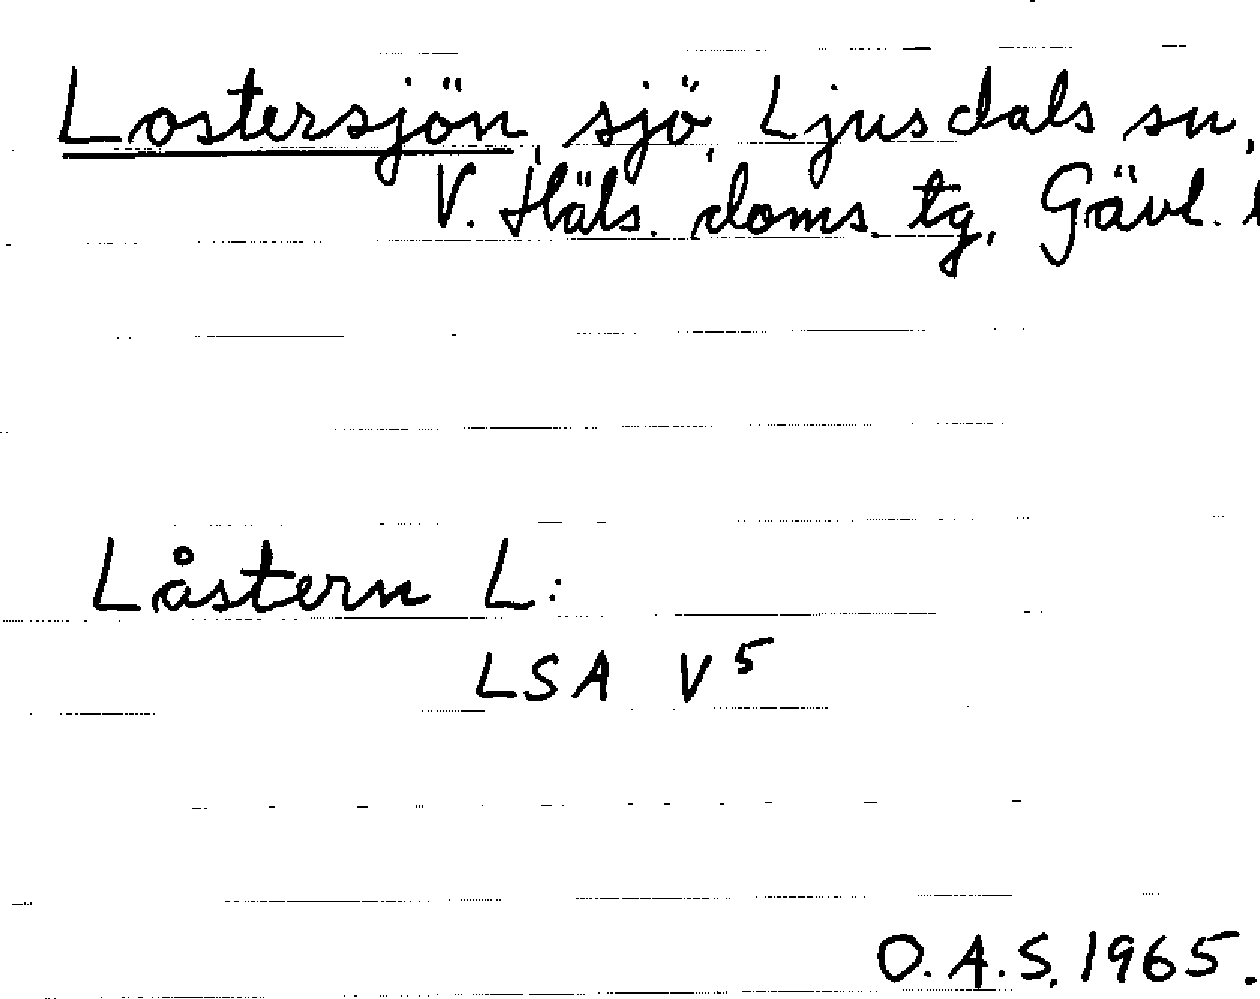 Lostersjön, sjö, Ljusdals sn,
V. Häls. doms. tg, Gävl. l
Låstern L:
LSA V⁵
O.A.S. 1965.